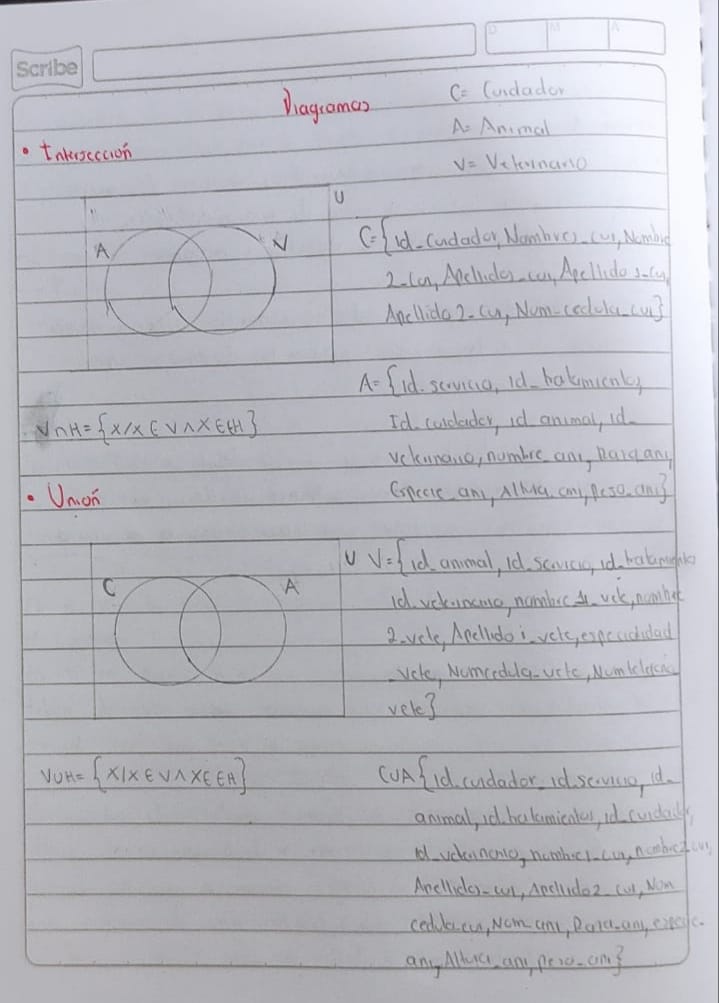 Scribe
D M A
Diagramas
C= Cuidador
A= Animal
V= Veterinario
• Intersección
U
A V
C={id_cuidador, Nombre1_cui, Nombre
2_cui, Apellidos_cui, Apellido 1_cui,
Apellido 2_cui, Num_cedula_cui}
A={id_servicio, id_tratamiento,
Id_cuidador, id_animal, id_
veterinario, nombre_ani, Raza_ani,
Especie_ani, Altura_ani, peso_ani}
V∩H={X/X∈V∧X∈∈H}
• Unión
U
C A
V={id_animal, id_servicio, id_tratamiento
id_veterinario, nombre 1_vete, nombre
2_vete, Apellido 1_vete, especialidad
_vete, Numcedula_vete, Num telefono
vete}
VUH={X/X∈V∧X∈∈H}
CUA{id_cuidador_id_servicio, id_
animal, id_tratamientos, id_cuidador,
id_veterinario, nombre1_cui, nombre2_cui,
Apellidos_cui, Apellido2_cui, Num
cedula_cui, Nom_ani, Raza_ani, especie_
ani, Altura_ani, peso_ani}